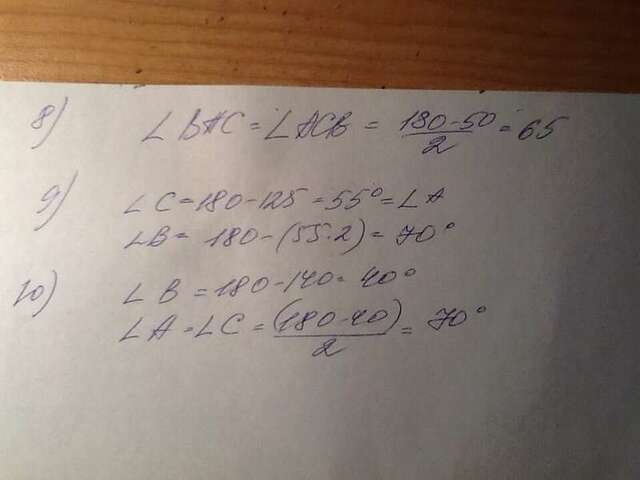 8) ∠BAC = ∠ACB = (180-50)/2 = 65
9) ∠C = 180-125 = 55° = ∠A
∠B = 180-(55·2) = 70°
10) ∠B = 180-140 = 40°
∠A = ∠C = (180-40)/2 = 70°